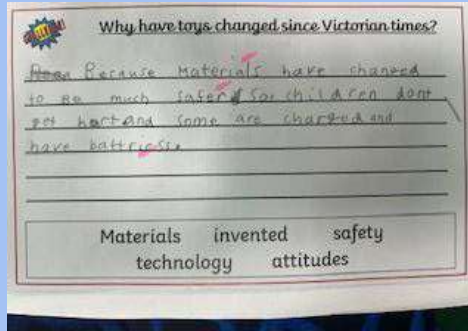 Why have toys changed since Victorian times?
Because Materials have changed
to Be much safer so children dont
get hort and some are charged and
have battriess.
Materials invented safety
technology attitudes